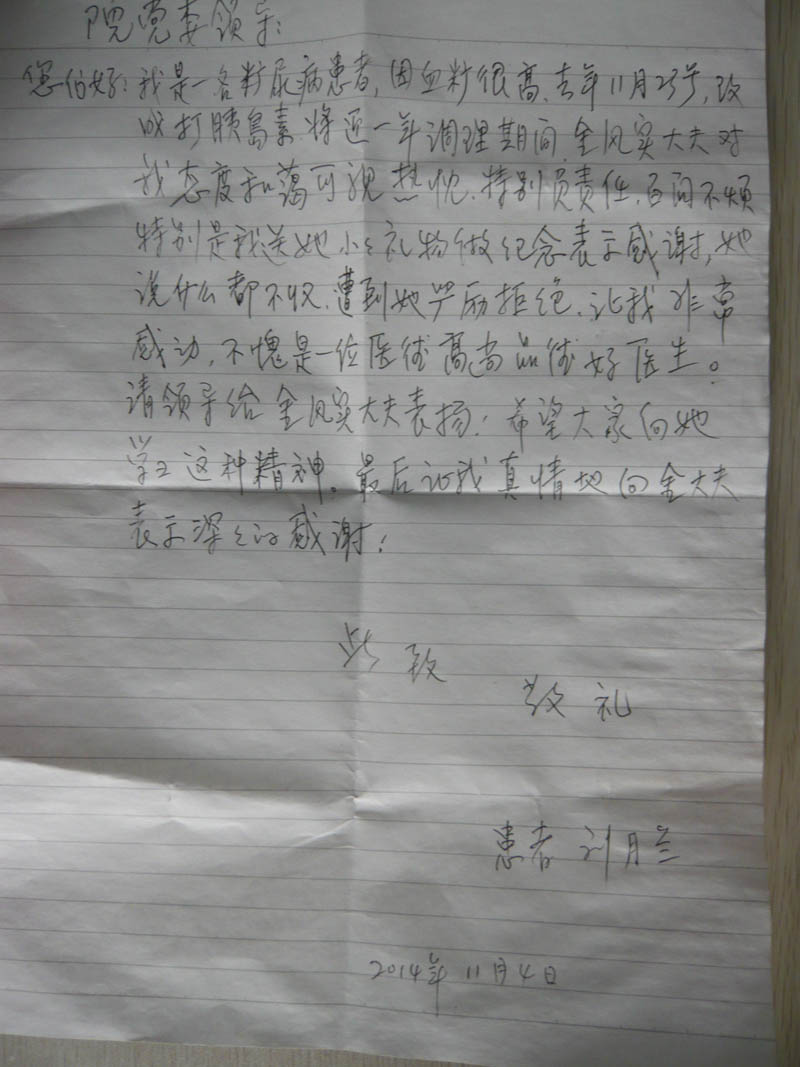 院党委领导:
您们好:我是一名糖尿病患者,因血糖很高、去年11月25号,改
成打胰岛素.将近一年调理期间.金凤实大夫对
我态度和蔼可亲.热忱.特别负责任.百问不烦
特别是我送她小小礼物做纪念表示感谢,她
说什么都不收.遭到她严厉拒绝.让我非常
感动,不愧是一位医德高尚品德好医生。
请领导给金凤实大夫表扬!希望大家向她
学习这种精神。最后让我真情地向金大夫
表示深深的感谢!
此致
敬礼
患者 刘月兰
2014年11月4日